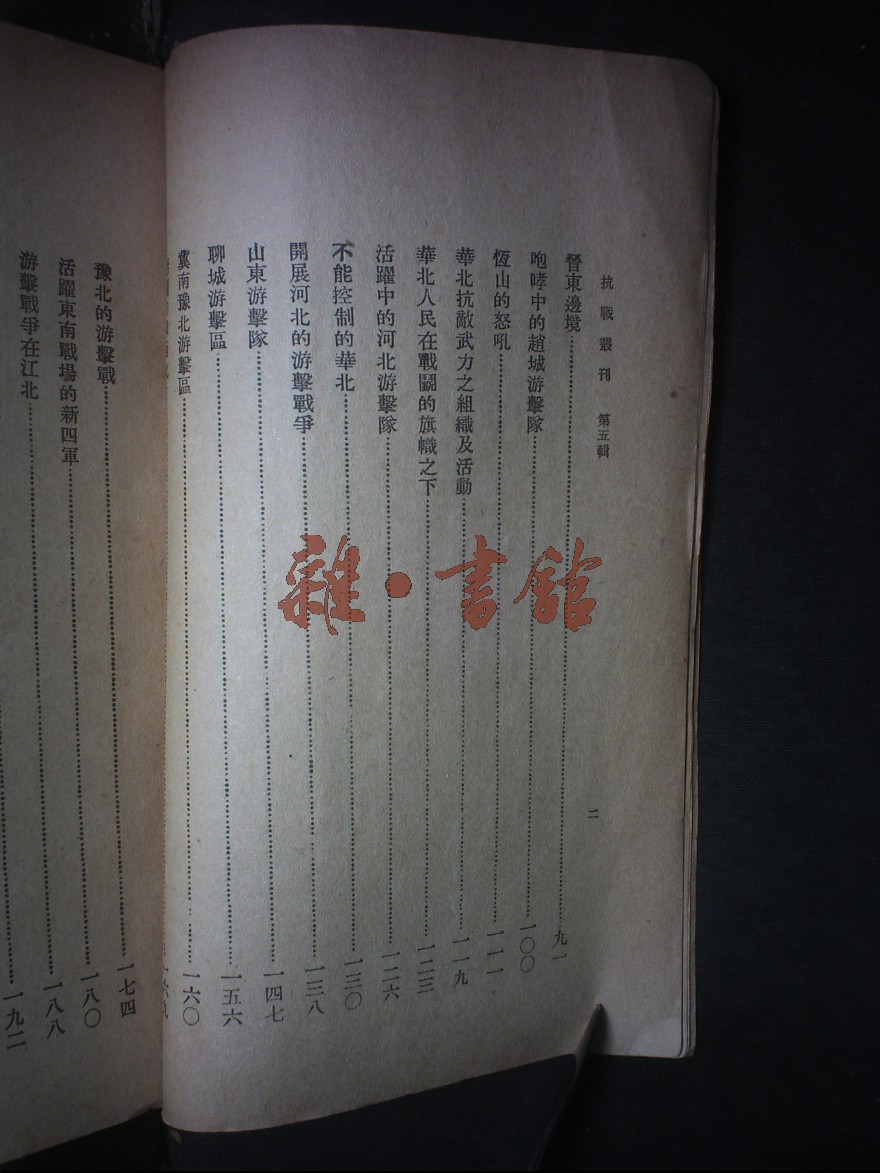 抗戰叢刊 第五輯
二
晉東邊境……九一
咆哮中的趙城游擊隊……一〇〇
恆山的怒吼……一一一
華北抗敵武力之組織及活動……一一九
華北人民在戰鬭的旗幟之下……一二三
活躍中的河北游擊隊……一二六
不能控制的華北……一三〇
開展河北的游擊戰爭……一三八
山東游擊隊……一四七
聊城游擊區……一五六
冀南豫北游擊區……一六〇
豫北的游擊戰……一七四
活躍東南戰場的新四軍……一八〇
游擊戰爭在江北……一八八
一九二
雜·書館